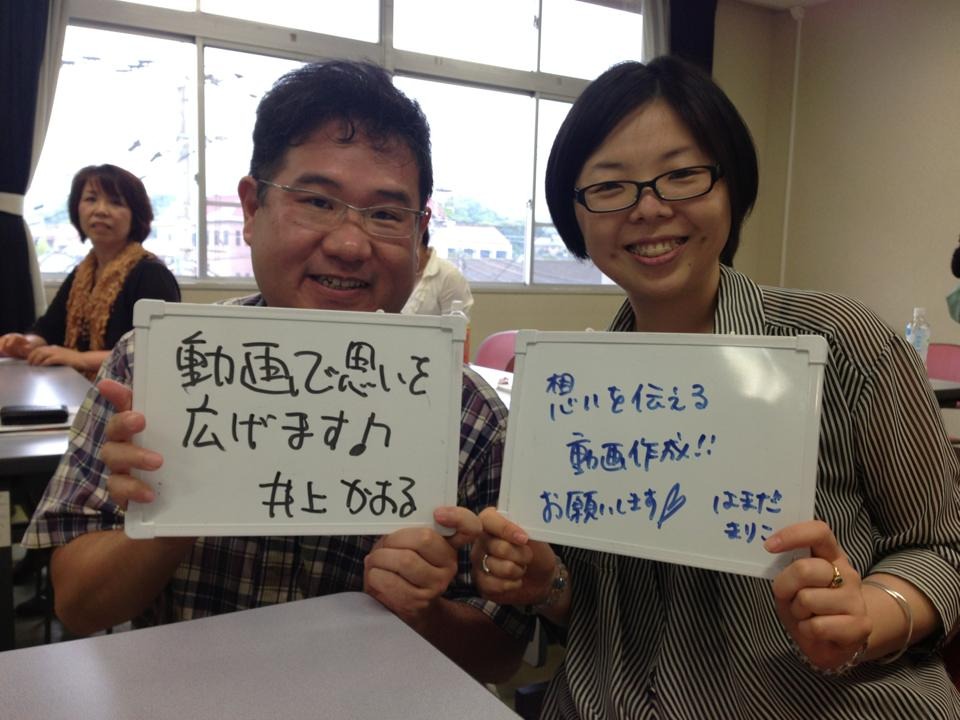 動画で思いを
広げます♪
井上かおる
想いを伝える
動画作成!!
お願いします
はまだ
まりこ